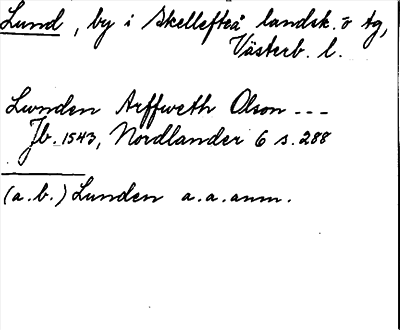 Lund, by i Skellefteå landsk. o tg,
Västerb. l.
Lwnden Arffweth Olson ---
Jb. 1543, Nordlander 6 s. 288
(a.b.) Lunden a.a. anm.